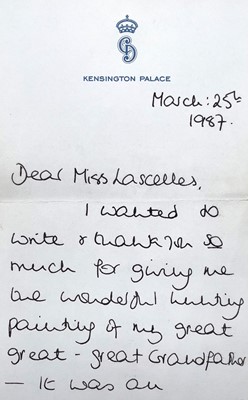 KENSINGTON PALACE
March: 25th
1987.
Dear Miss Lascelles,
I wanted to
write & thank you so
much for giving me
the wonderful hunting
painting of my great
great - great Grandfather
— it was an